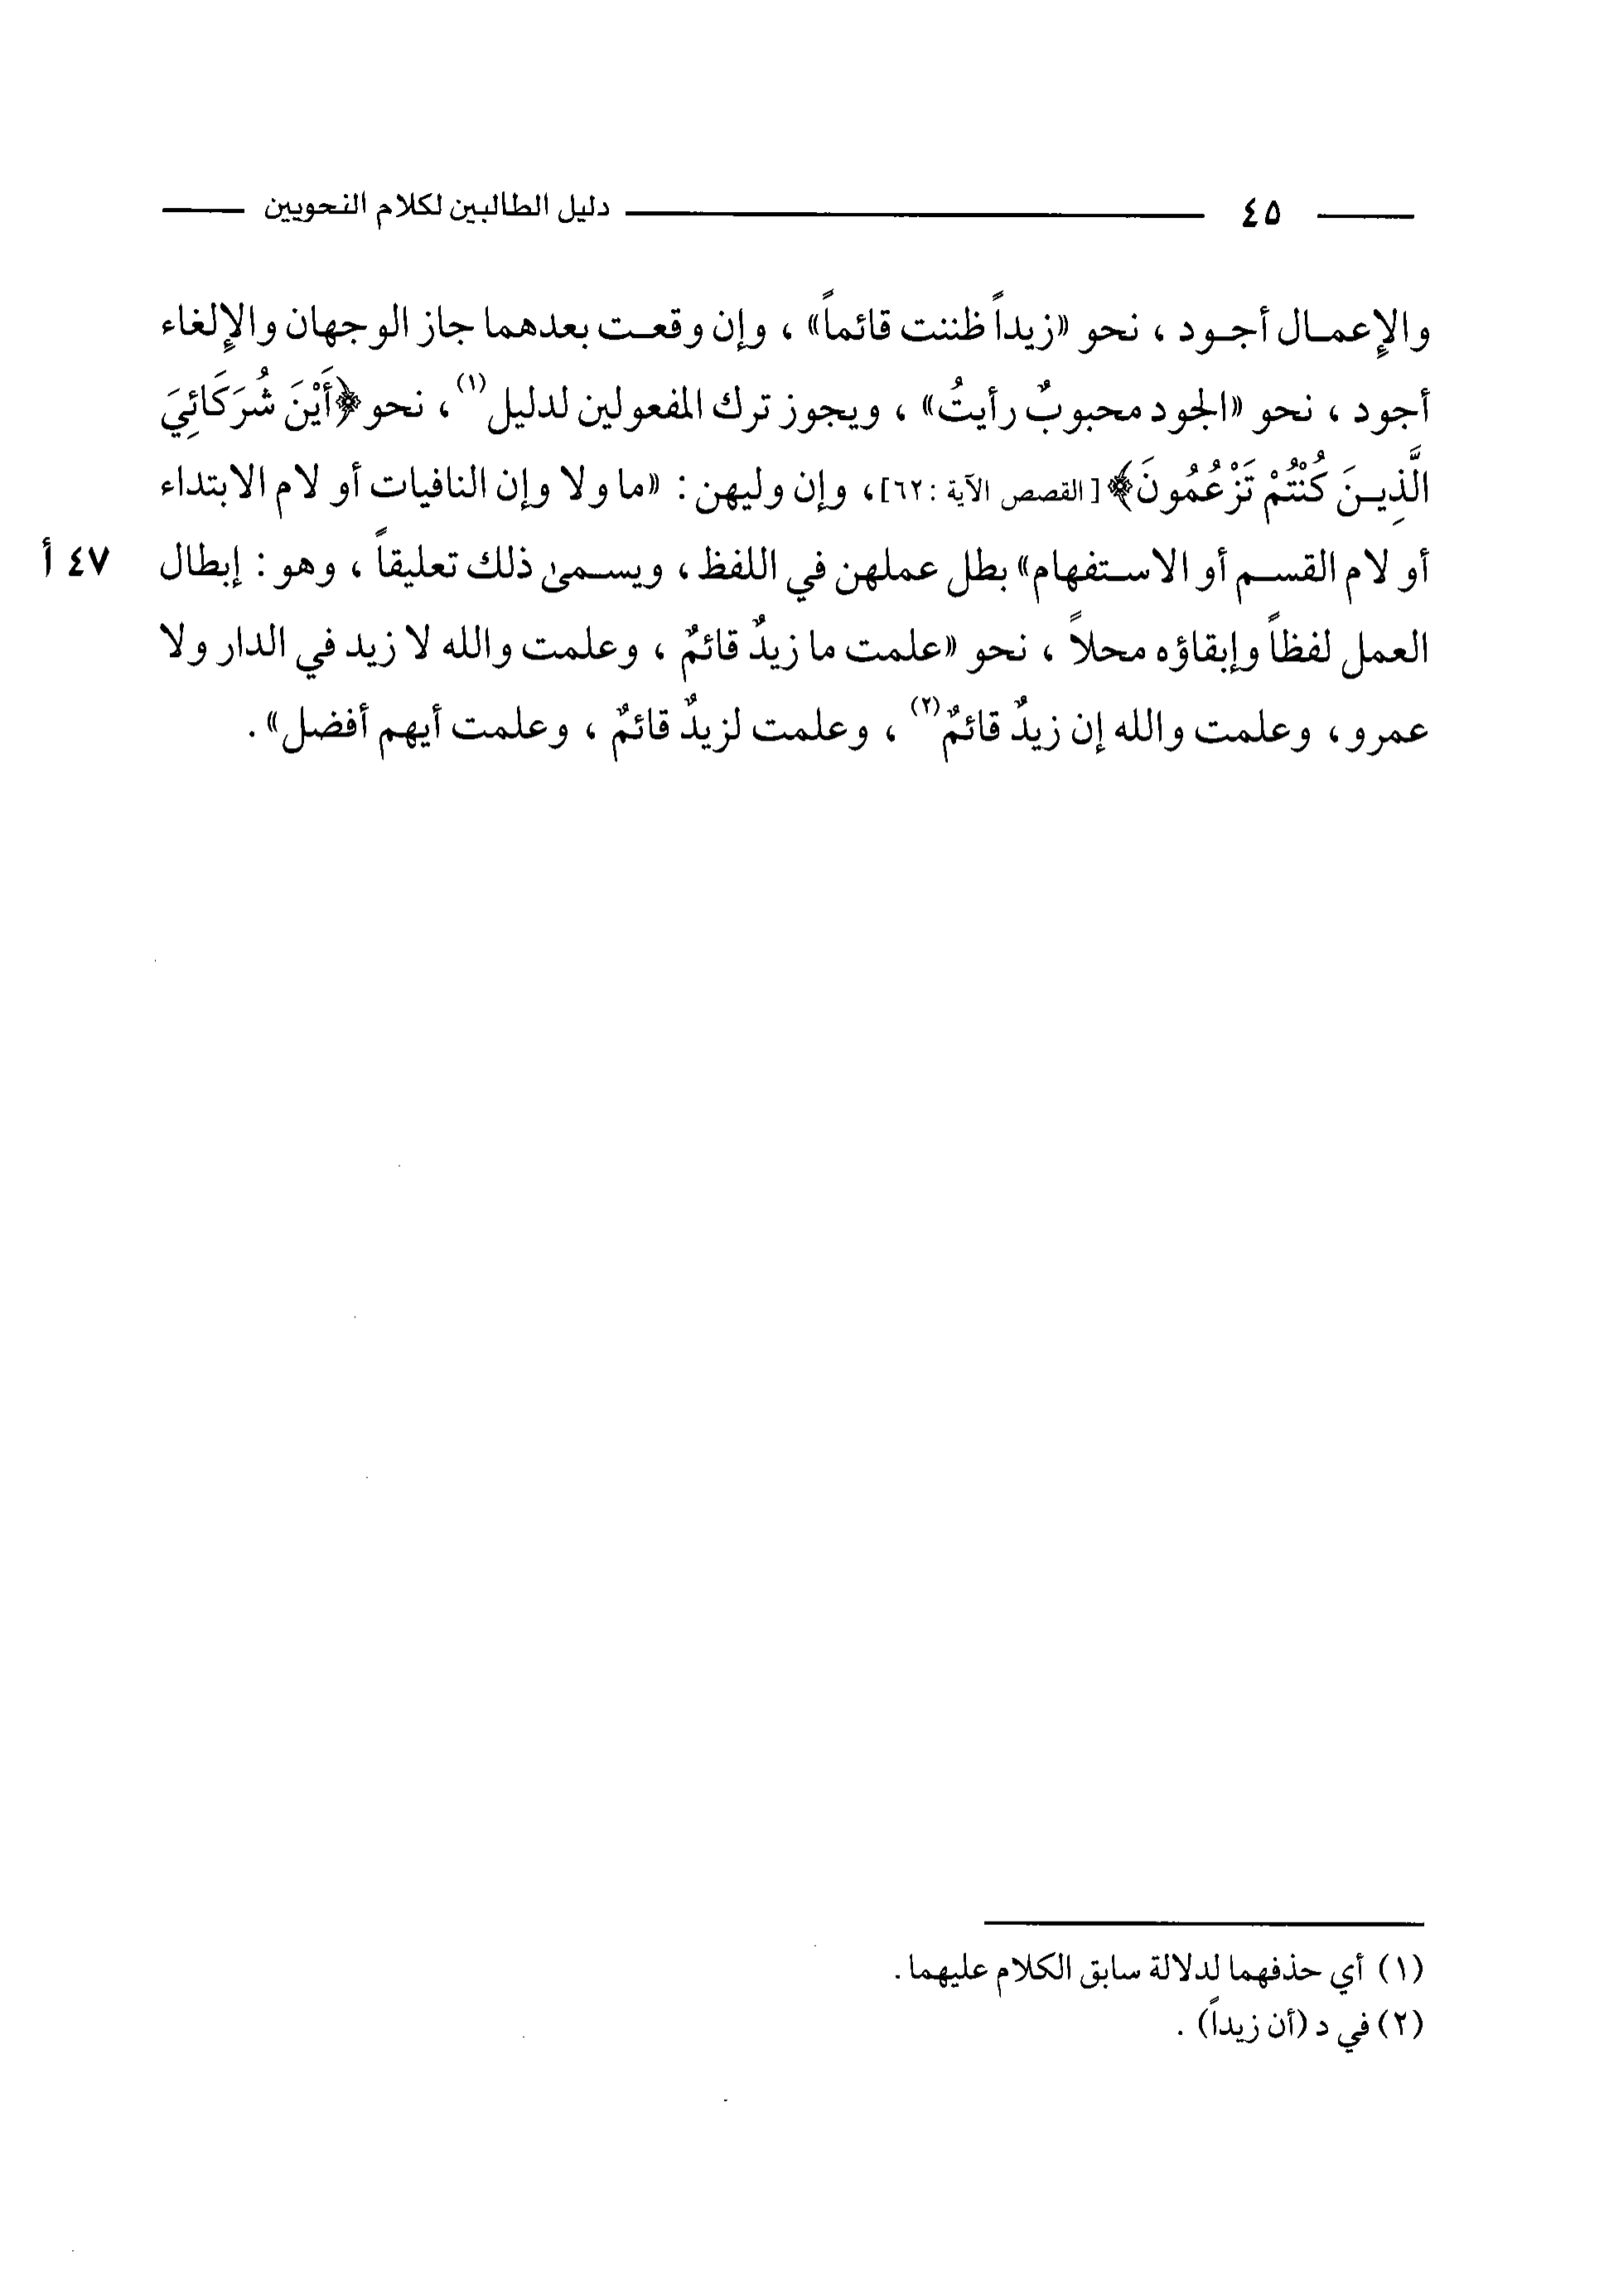 ٤٥ دليل الطالبين لكلام النحويين
والإعمال أجود ، نحو «زيداً ظننت قائماً» ، وإن وقعت بعدهما جاز الوجهان والإلغاء
أجود ، نحو «الجود محبوبٌ رأيتُ» ، ويجوز ترك المفعولين لدليل(١)، نحو ﴿أَيْنَ شُرَكَائِيَ
الَّذِينَ كُنْتُمْ تَزْعُمُونَ﴾ [القصص الآية : ٦٢]، وإن وليهن : «ما ولا وإن النافيات أو لام الابتداء
أو لام القسم أو الاستفهام» بطل عملهن في اللفظ ، ويسمى ذلك تعليقاً ، وهو : إبطال ٤٧ أ
العمل لفظاً وإبقاؤه محلاً ، نحو «علمت ما زيدٌ قائمٌ ، وعلمت والله لا زيد في الدار ولا
عمرو ، وعلمت والله إن زيدٌ قائمٌ(٢) ، وعلمت لزيدٌ قائمٌ ، وعلمت أيهم أفضل» .
(١) أي حذفهما لدلالة سابق الكلام عليهما .
(٢) في د (أن زيداً) .